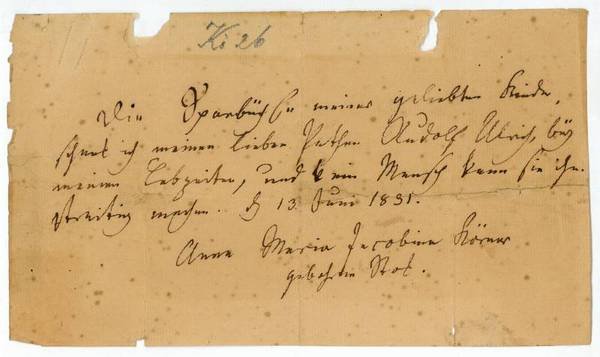 Kö 26
Die Sparbüchse meiner geliebten Kinder,
schenk ich meinen lieben Pathen Rudolf Ulrich, bey
meinen Lebzeiten, und kein Mensch kann sie ihm
streitig machen. d 13 Juni 1831.
Anna Maria Jacobina Körner
gebohrne Stok.